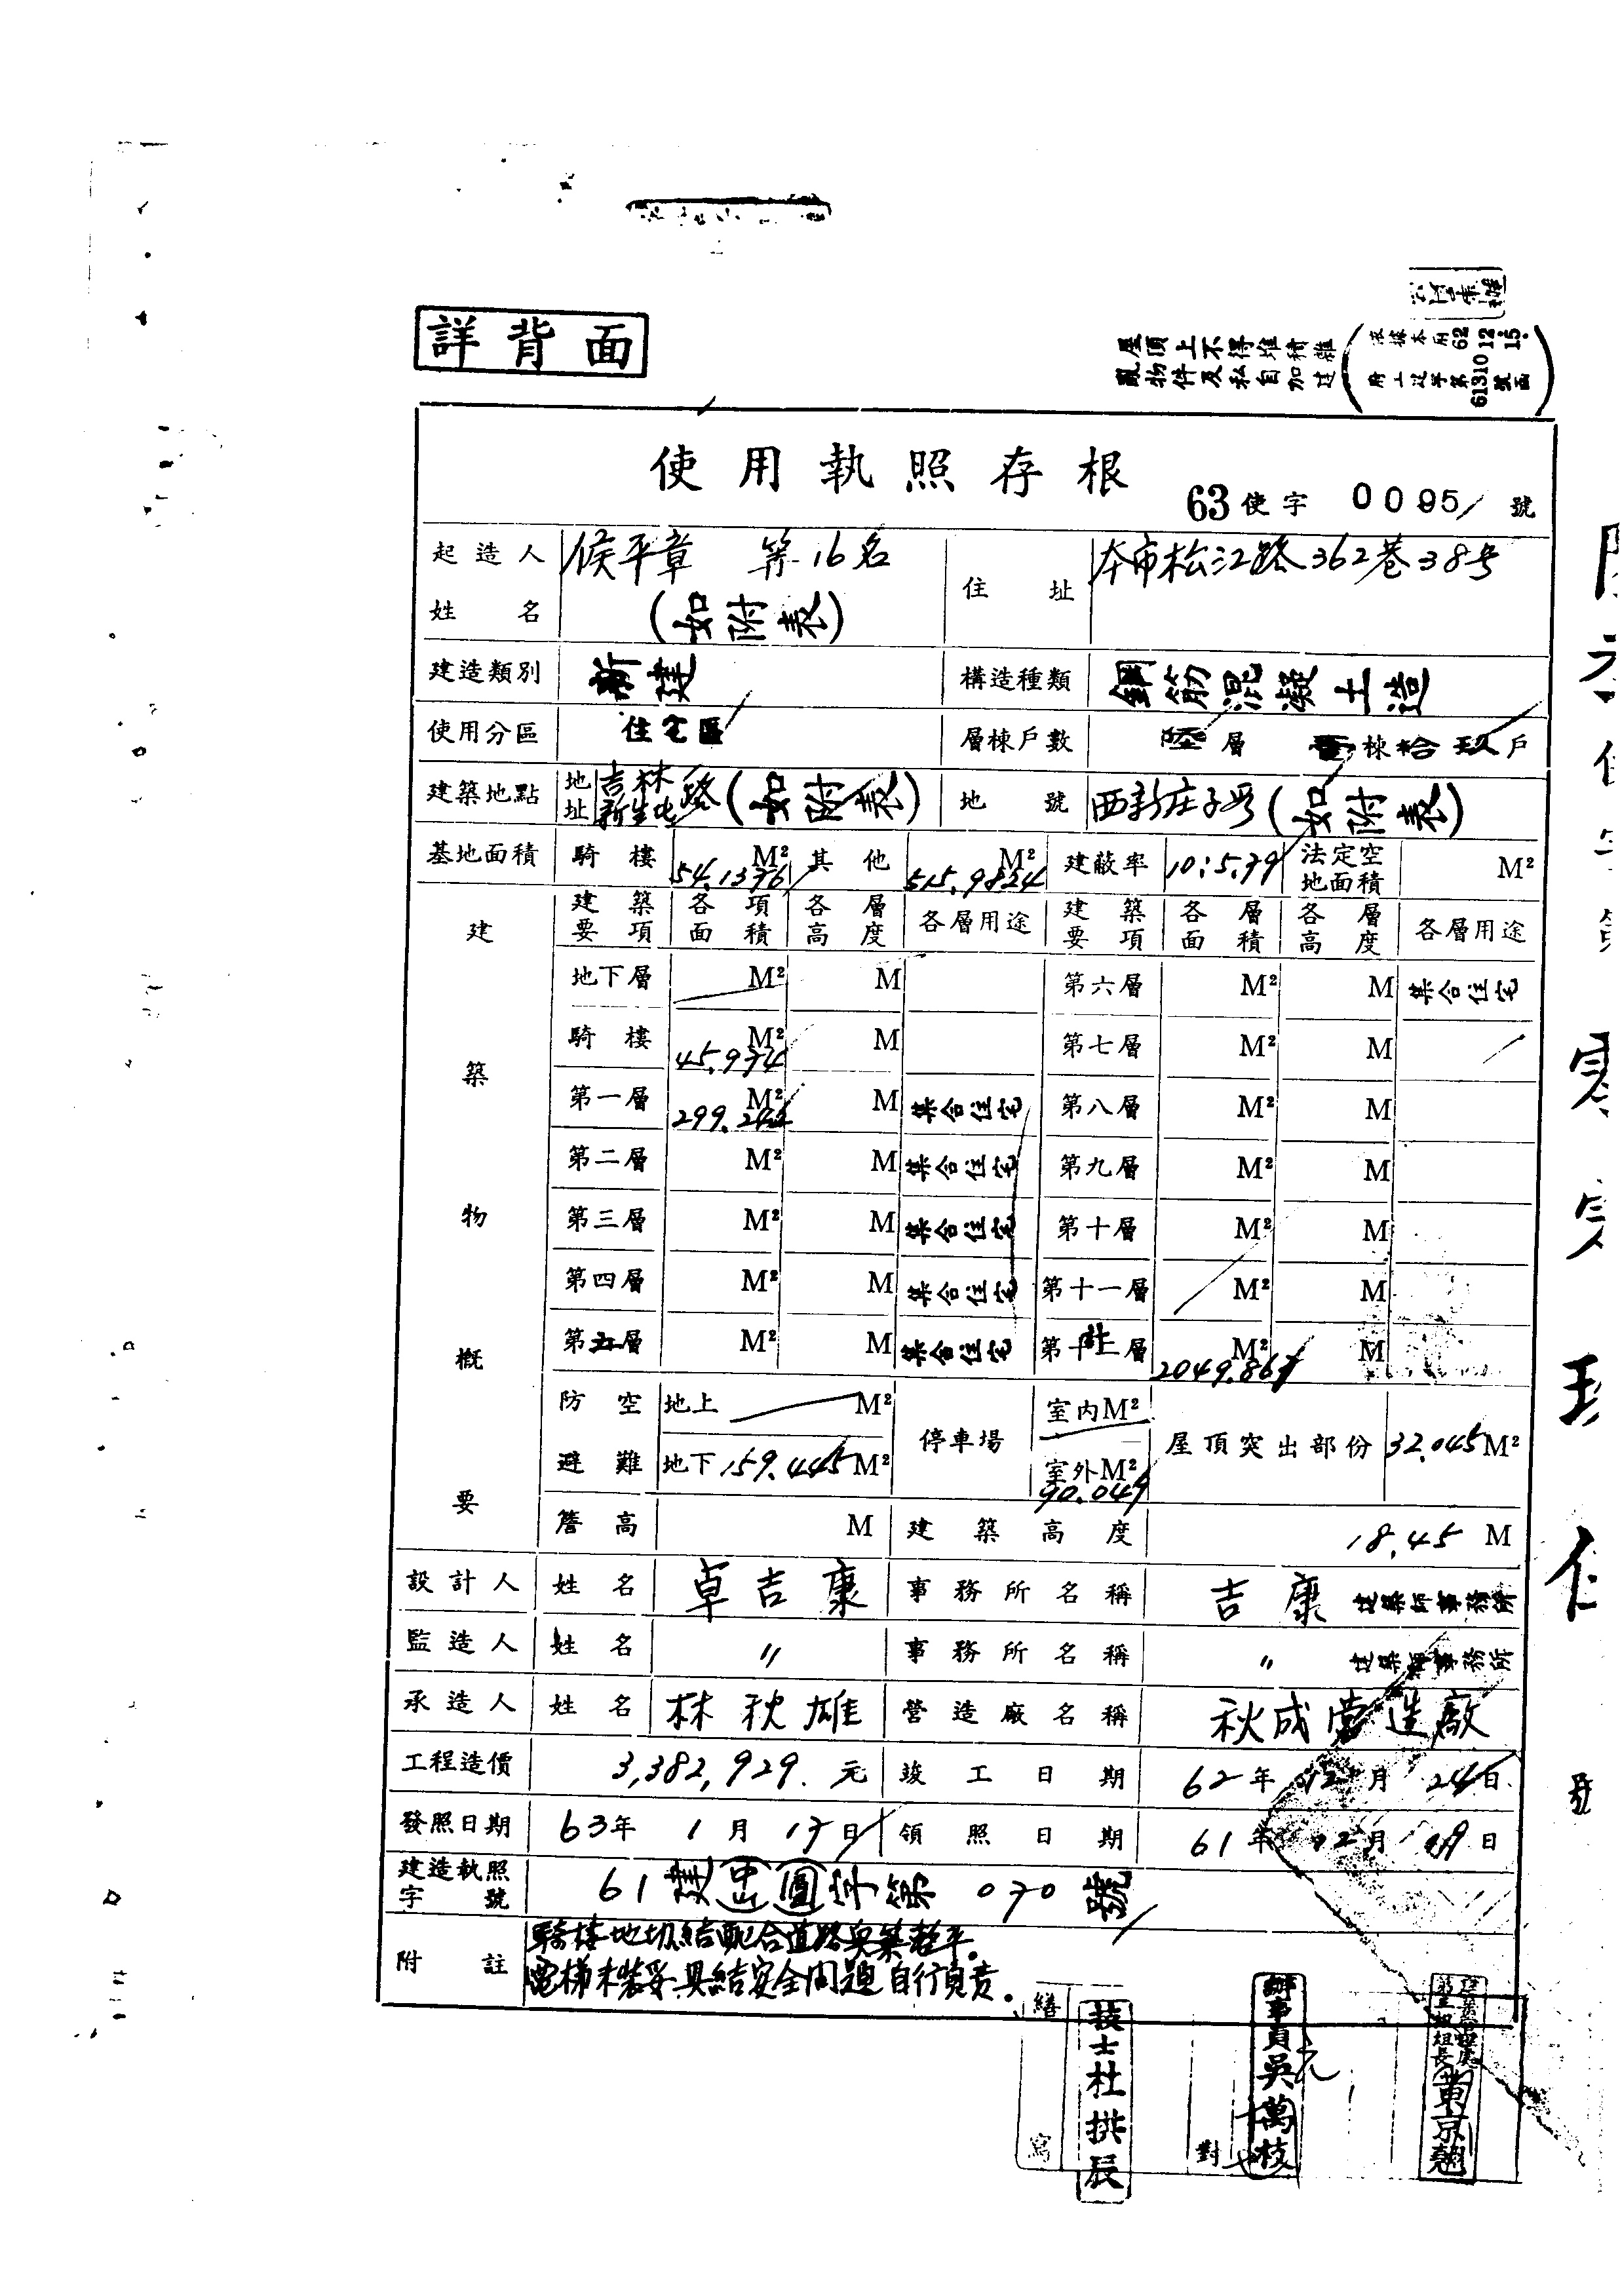 詳背面
屋頂上不得堆積雜
亂物件及私自加建
62 12 15.
61310
使用執照存根
63使字 0095 號
起造人姓名 侯平章 等16名 (如附表) 住址 本市松江路362巷38号
建造類別 新建 構造種類 鋼筋混凝土造
使用分區 住宅區 層棟戶數 陸層 棟拾玖戶
建築地點 地址 吉林 新生北路(如附表) 地號 西新庄子段(如附表)
基地面積 騎樓 54.1376 M² 其他 515.9824 M² 建蔽率 10:5.79 法定空地面積 M²
建築物概要
建築要項 各項面積 各層高度 各層用途 建築要項 各層面積 各層高度 各層用途
地下層 M² M 第六層 M² M 集合住宅
騎樓 45.974 M² M 第七層 M² M
第一層 299.244 M² M 集合住宅 第八層 M² M
第二層 M² M 集合住宅 第九層 M² M
第三層 M² M 集合住宅 第十層 M² M
第四層 M² M 集合住宅 第十一層 M² M
第五層 M² M 集合住宅 第十二層 計 2049.867 M² M
防空避難 地上 M² 停車場 室內M² 屋頂突出部份 32.045M²
地下 159.445 M² 室外M² 90.047
簷高 M 建築高度 18.45 M
設計人 姓名 卓吉康 事務所名稱 吉康 建築師事務所
監造人 姓名 〃 事務所名稱 〃 建築師事務所
承造人 姓名 林秋雄 營造廠名稱 秋成營造廠
工程造價 3,382,929.元 竣工日期 62年12月24日
發照日期 63年1月17日 領照日期 61年12月 日
建造執照字號 61建(中山)(圓)字第070號
附註 騎樓地切結配合道路興築整平.
電梯未裝妥具結安全問題自行負責.
繕寫 技士杜拱辰 對 辦事員吳萬枝 黃京翹